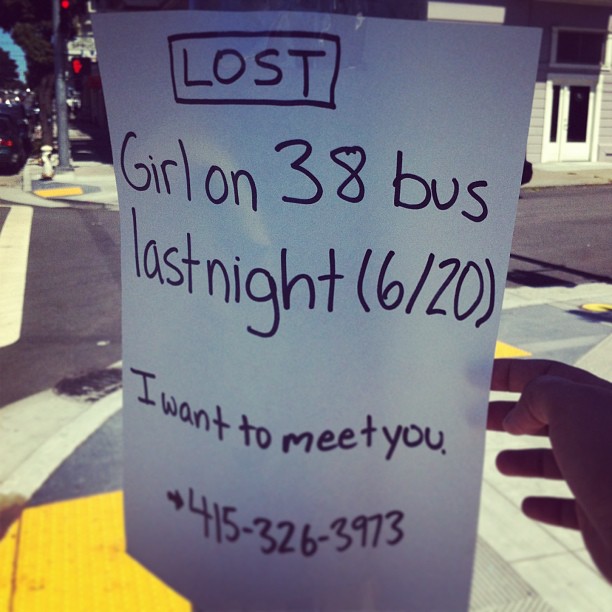 LOST
Girl on 38 bus
last night (6/20)
I want to meet you.
→415-326-3973